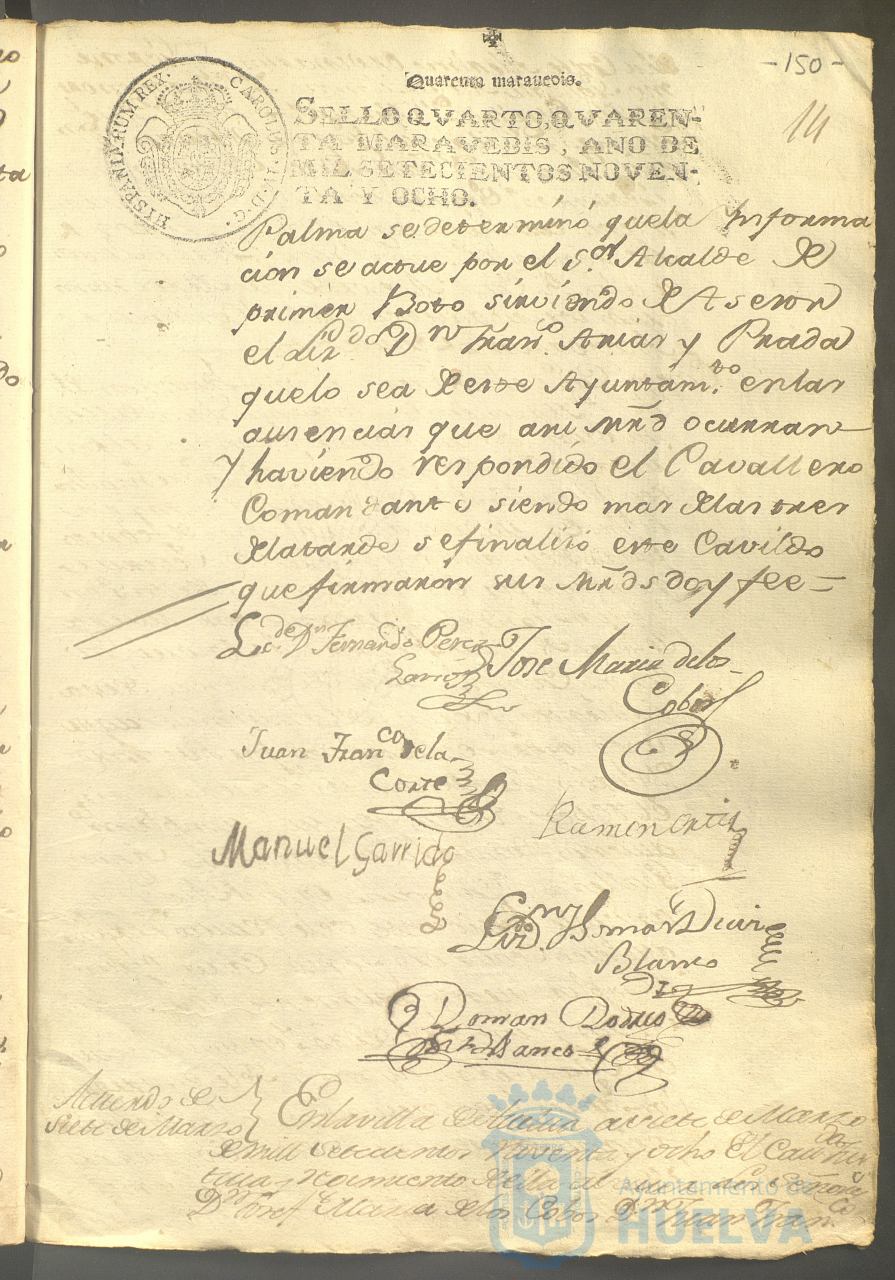 -150-
Quarenta maravedis.
HISPANIARUM REX. CAROLUS. IV. D. G.
SELLO QVARTO, QVAREN-
TA MARAVEDIS, AÑO DE
MIL SETECIENTOS NOVEN-
TA Y OCHO.
Palma se determinó quela Informa
ción se actue por el S.or Alcalde de
primer Boto sirviendo de Asesor
el Liz.do Dn Fran.co Arias y Prada
quelo sea de este Ayuntám.to en las
ausencias que asi Mrd ocurran
Y haviendo respondido el Cavallero
Comandante siendo mas delas tres
dela tarde se finalizó este Cavildo
que firmaron sus Mrds doy fee =
Lc.do Dn Fernando Perez
Jose Maria delos
Cobos
Juan Fran.co dela
Corte
Ramon Ortiz
Manuel Garrido
Blanco
Roman
Blanco
Acuerdo de
siete de Marzo
En la villa de Huelva a siete de Marzo
de mill setecientos noventa y ocho El Cau
Dn Josef Maria delos Cobos Dn Juan Fran.co
Ayuntamiento de
HUELVA